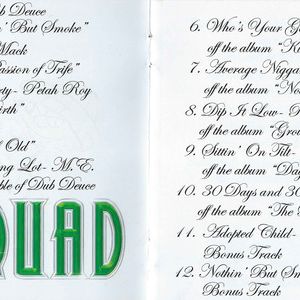 b Deuce
n' But Smoke"
Mack
assion of Trife"
ety- Petah Roy
irth"
Old"
ng Lot- M.E.
ble of Dub Deuce
QUAD
6. Who's Your G
off the album "K
7. Average Nigga
off the album "No
8. Dip It Low-
off the album "Gro
9. Sittin' On Tilt-
off the album "Day
10. 30 Days and 30
off the album "The
11. Adopted Child-
Bonus Track
12. Nothin' But Smo
Bonus Track